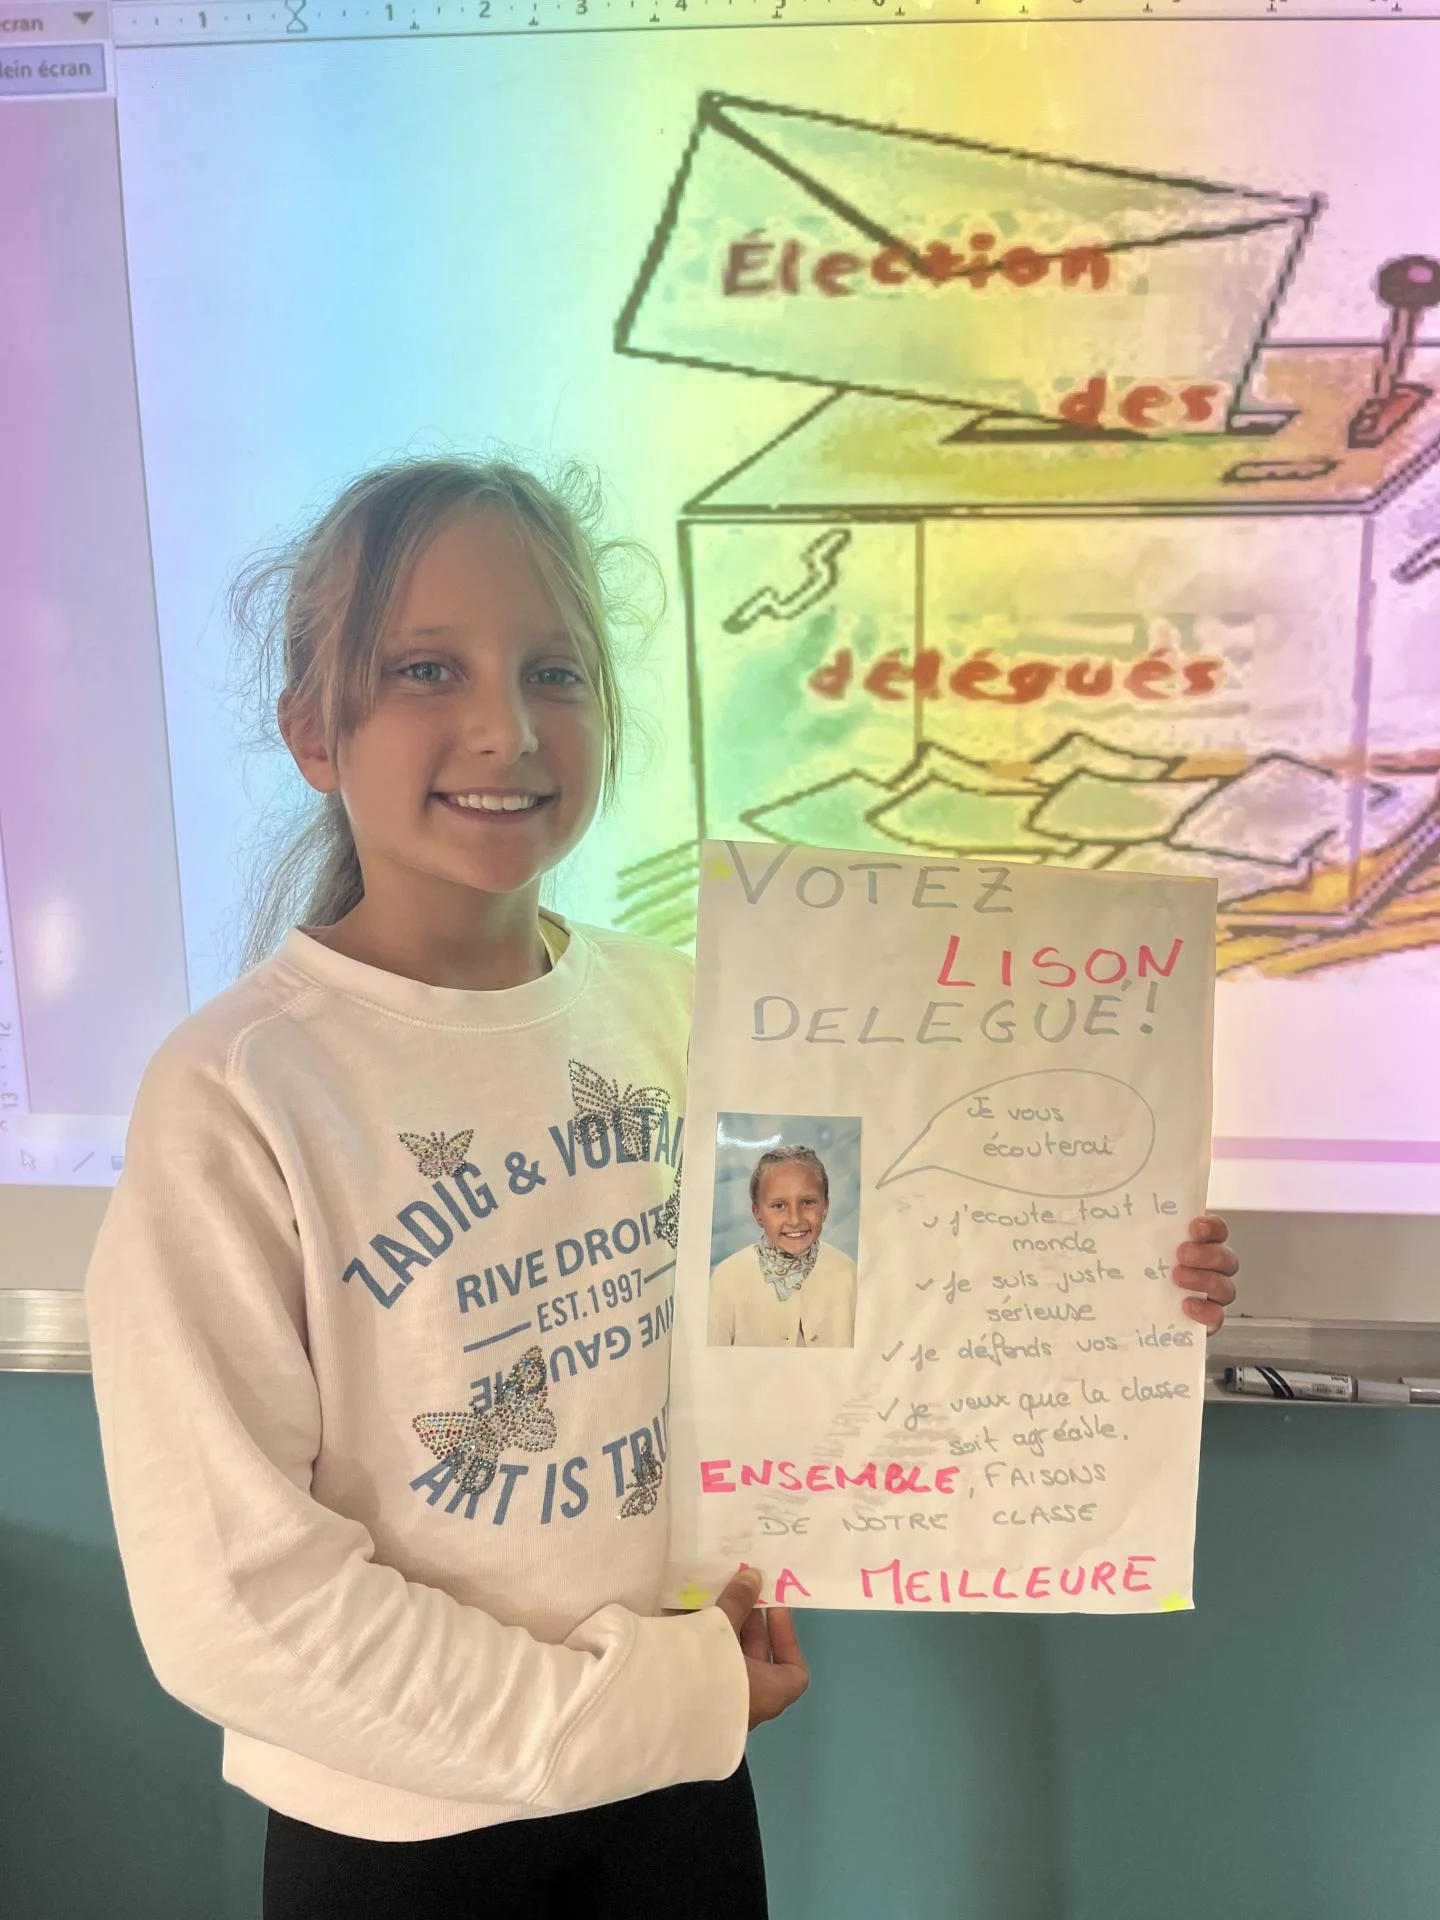 écran
lein écran
1 1 2 3 4 5 6
Élection
des
délégués
VOTEZ
LISON
DELEGUÉ!
Je vous
écouterai
j'ecoute tout le
monde
je suis juste et
sérieuse
je défends vos idées
je veux que la classe
soit agréable.
ENSEMBLE, FAISONS
DE NOTRE CLASSE
LA MEILLEURE
ZADIG & VOLTAI
RIVE DROIT
EST.1997
RIVE GAUCHE
ART IS TRU
12
13